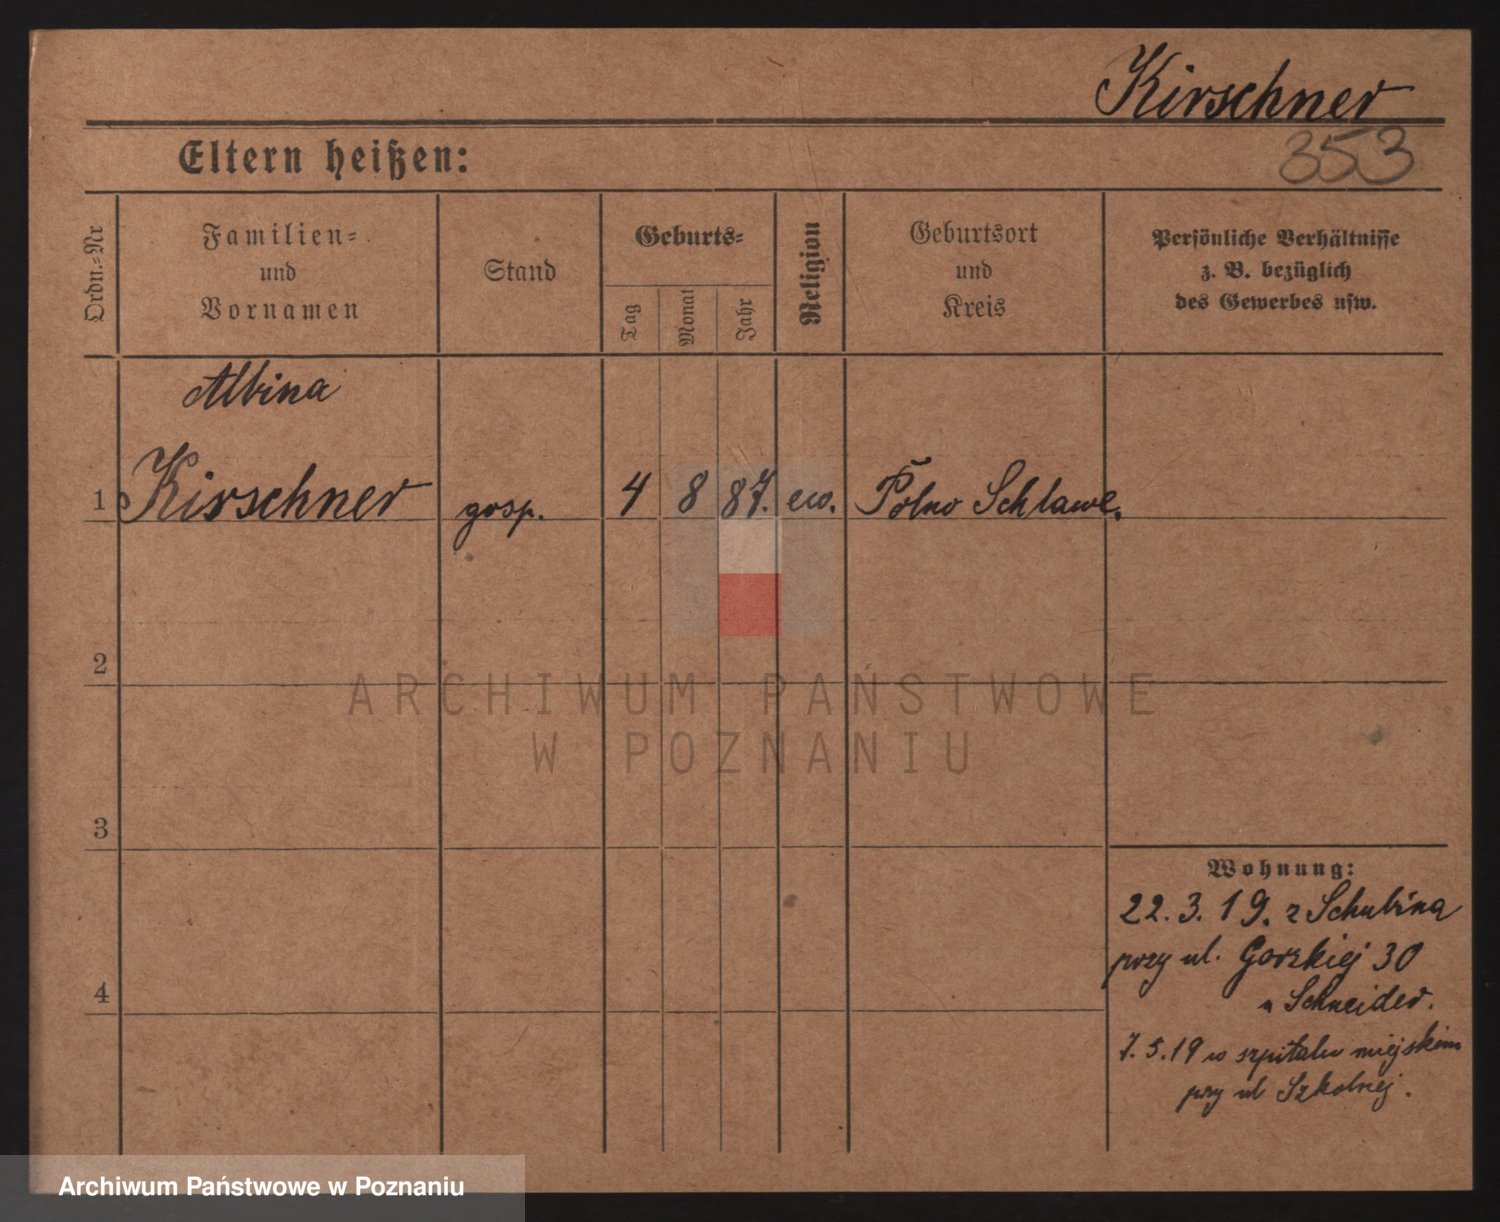 Kirschner
353
Eltern heißen:
Ordn.-Nr
Familien-
und
Vornamen
Stand
Geburts-
Tag
Monat
Jahr
Religion
Geburtsort
und
Kreis
Persönliche Verhältnisse
z. B. bezüglich
des Gewerbes usw.
Albina
1 Kirschner gosp. 4 8 87. ew. Polno Schlawe.
2
ARCHIWUM PAŃSTWOWE
W POZNANIU
3
Wohnung:
22.3.19. z Schubina
przy ul. Gorzkiej 30
Schneider.
4
7.5.19 w szpitalu miejskim
przy ul Szkolnej.
Archiwum Państwowe w Poznaniu